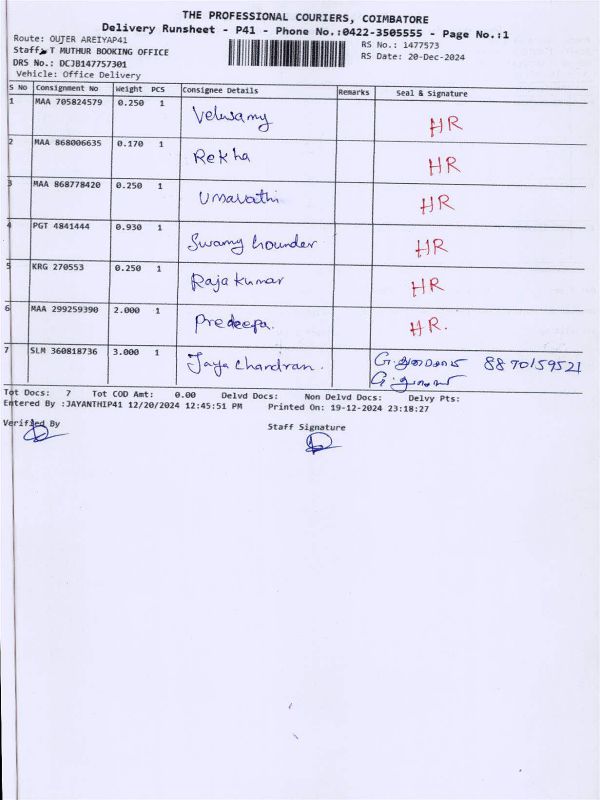 THE PROFESSIONAL COURIERS, COIMBATORE
Delivery Runsheet - P41 - Phone No.:0422-3505555 - Page No.:1
Route: OUTER AREIYAP41
RS No.: 1477573
Staff: T MUTHUR BOOKING OFFICE
RS Date: 20-Dec-2024
DRS No.: DCJB147757301
Vehicle: Office Delivery
S No Consignment No Weight PCS Consignee Details Remarks Seal & Signature
1 MAA 705824579 0.250 1 Veluswamy HR
2 MAA 868006635 0.170 1 Rekha HR
3 MAA 868778420 0.250 1 Umavathi HR
4 PGT 4841444 0.930 1 Swamy Gounder HR
5 KRG 270553 0.250 1 Raja kumar HR
6 MAA 299259390 2.000 1 Predeepa. HR.
7 SLM 360818736 3.000 1 Jaya chandran. 8870159521
Tot Docs: 7 Tot COD Amt: 0.00 Delvd Docs: Non Delvd Docs: Delvy Pts:
Entered By :JAYANTHIP41 12/20/2024 12:45:51 PM Printed On: 19-12-2024 23:18:27
Verified By
Staff Signature